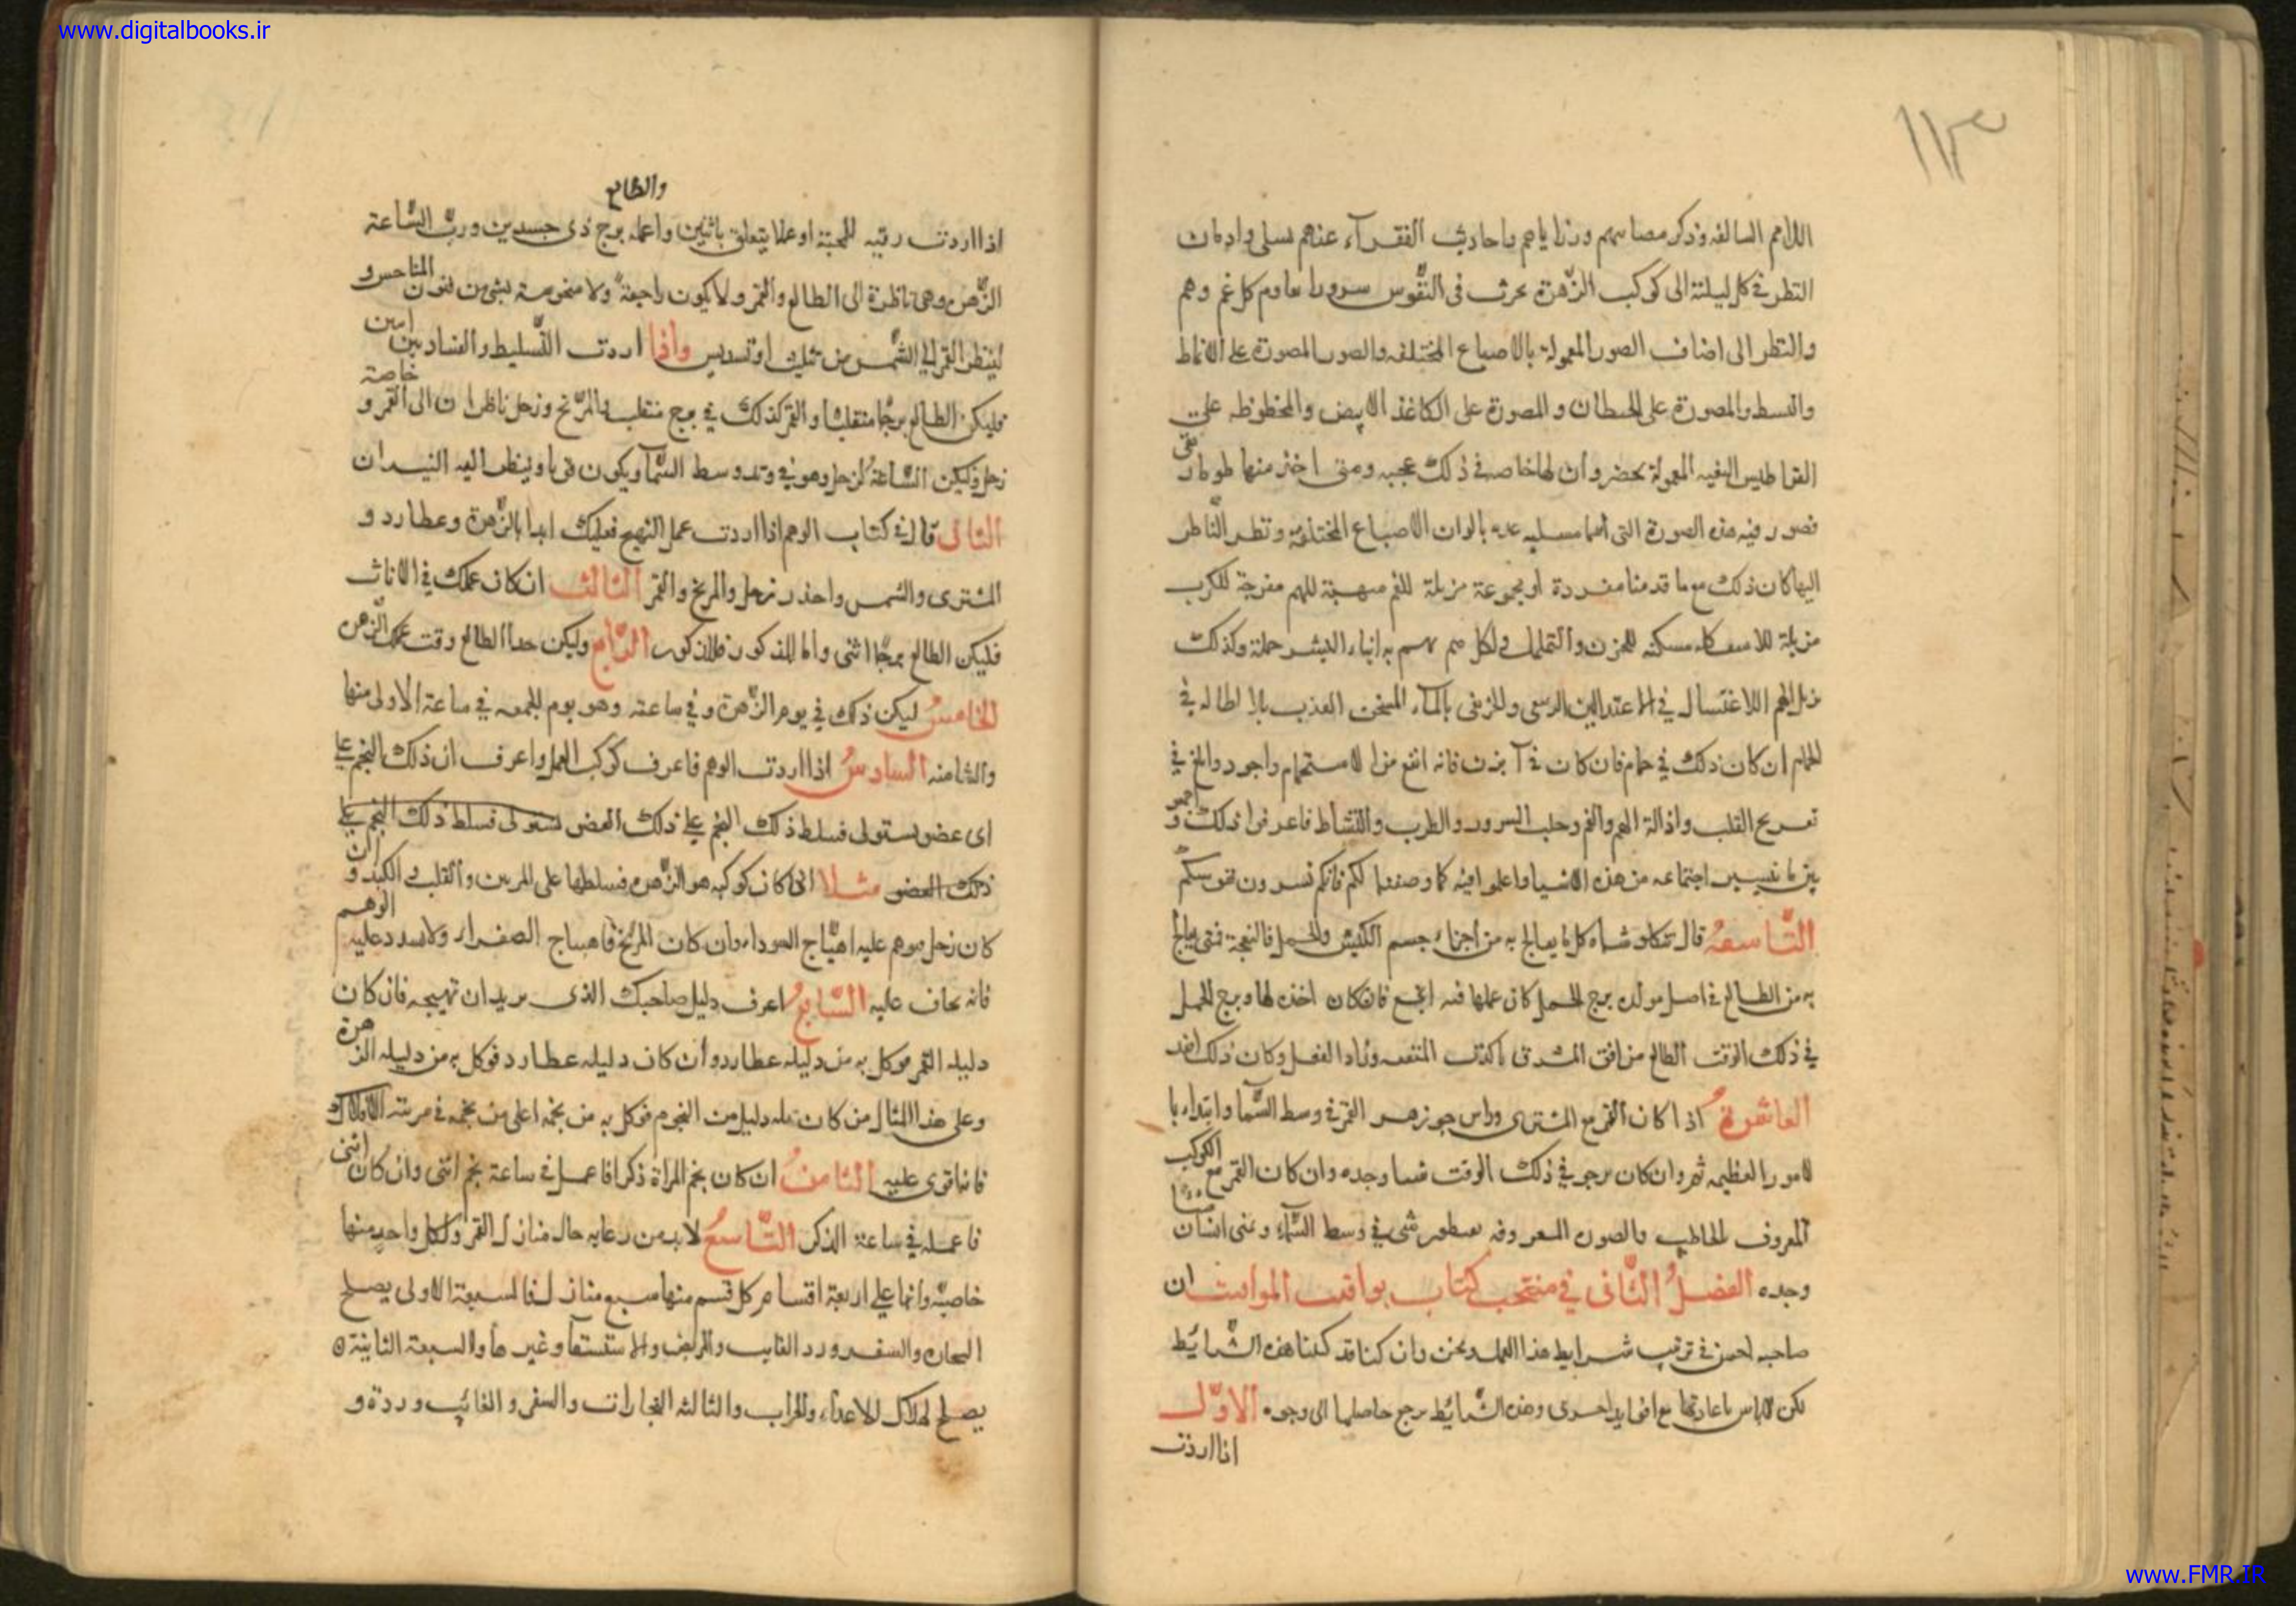 www.digitalbooks.ir
١١٣
الامم السالفه وذكر مصائبهم ورزاياهم واحاديث الفقرآء عندهم تسلى وادمان
النظر فى كل ليلة الى كوكب الزّهرة يحرث فى النّفوس سرورا يقاوم كل غم وهم
والنظر الى اصناف الصور المعمولة بالاصباغ المختلفه والصور المصورة على الانماط
والبسط والمصورة على الحيطان والمصورة على الكاغذ الابيض والمخطوطه على
القراطيس المعمولة بحضر وان لها خاصه فى ذلك عجيبه ومتى اخذ منها طومار نقى
فصور فيه هذه الصورة التى انها مسليه بالوان الاصباغ المختلفة ونظر النّاظر
اليها كان ذلك مع ما قدمنا مفردة او مجموعة مزيلة للغم مبهجة للهم مفرجة للكرب
مزيلة للاسف مسكنه للحزن والتململ ولكل هم يهتم به ابناء البشر جملة وكذلك
الاغتسال فى الاعتدالين الربيعى والخريفى بالمآء المسخن العذب بلا اطاله فى
الحمام ان كان ذلك فى حمام فان كان فى آبزن فانه انفع من الاستحمام واجود وابلغ فى
تفريح القلب وازالة الهم والغم وجلب السرور والطرب والنشاط فاعرفوا ذلك واجمعوا
بين ما تيسر اجتماعه من هذه الاشيا واعلموا فيه كما وصفنا لكم فانكم تسرون نفوسكم
التّاسعه قال تنكلوشاه كل ما يعالج به من اجزاء جسم الكبش والحمل والنعجة فمتى يعالج
به من الطالع فى اصل مولده برج الحمل كان عملها فيه انجع فان كان اخذه لها وبرج الحمل
فى ذلك الوقت الطالع من افق المشرق تاكدت المنفعه وزاد الفعل وكان ذلك
العاشرة اذا كان القمر مع المشترى وراس جوزهر القمر فى وسط السّما وابتداء با
لامور العظيمه ثم وان كان يرجو فى ذلك الوقت شيا وجده وان كان القمر مع الكوكب
المعروف بالخاطب والصور المعروفه بسطورشى فى وسط السّمآء وتمنى انسان شيئا
وجده الفصل الثّانى فى منتخب كتاب يواقيت المواقيت ان
صاحبه احسن فى ترتيب شرايط هذا العمل ونحن وان كنا قد كتبنا هذه الشّرائط
لكن لاباس باعادتها مع افوايد اخرى وهذه الشّرائط يرجع حاصلها الى وجوه الاوّل
اذا اردت
والطالع
اذا اردت رقيه للمحبّة او عملا يتعلق باثنين واعمله ببرج ذى جسدين وربّ السّاعة
الزّهرة وهى ناظرة الى الطالع والقمر ولا يكون راجعة ولا منحوسة بشى من فنون المناحس و
لينظر القمر الى الشّمس من تثليث او تسديس واذا اردت التّسليط والفساد بين اثنين
فليكن الطالع برجًا منقلبًا والقمر كذلك فى برج منقلب والمرّيخ وزحل ناظران الى القمر و خاصة
زحل وليكن السّاعة لزحل وهو فى وتد وسط السّمآ ويكون قويا وينظر اليه النيران
الثانى قال فى كتاب الوهم اذا اردت عمل التهيج فعليك ابدا بالزّهرة وعطارد و
المشترى والشمس واحذر زحل والمريخ والقمر الثالث ان كان عملك فى الاناث
فليكن الطالع برجًا انثى واما المذكور فللذكور الرّابع وليكن حد الطالع وقت عملك الزّهرة
الخامس ليكن ذلك فى يوم الزّهرة وفى ساعته وهو يوم الجمعه فى ساعة الاولى منها
والثامنه السادس اذا اردت الوهم فاعرف كوكب العمل واعرف ان ذلك النجم على
اى عضو يستولى فسلط ذلك النجم على ذلك العضو يستولى فسلط ذلك النجم على
ذلك العضو مثلا ان كان كوكبه هو الزّهرة فسلطها على المرين والقلب والكبد وان
كان زحل فوهم عليه اهيّاج السوداء وان كان المرّيخ فاهياج الصفراء ولا تشدد عليه الوهم
فانه يخاف عليه السّابع اعرف دليل صاحبك الذى تريد ان تهيجه فان كان
دليله القمر فوكل به من دليله عطارد وان كان دليله عطارد فوكل به من دليله الزهرة
وعلى هذا المثال من كان له دليل من النجوم فوكل به من نجمه اعلى من نجمه فى مرتبة الافلاك
فانها قوى عليه الثامن ان كان نجم المراة ذكرا فاعمل فى ساعة نجم انثى وان كان انثى
فاعمله فى ساعة الذكر التّاسع لابد من رعايه حال منازل القمر ولكل واحد منها
خاصيّة وانها على اربعة اقسام كل قسم منها سبع منازل فالسبعة الاولى يصلح
والسفر ورد الغايب والمريض والاستسقا وغيرها والسبعة الثانية
يصلح لهلاك الاعداء والخراب والثالثه التجارات والسفر والغائب وردة و
www.FMR.IR